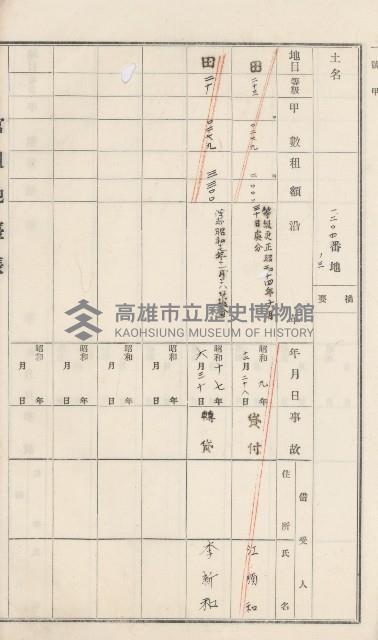 一號甲
土名
一二〇四番地ノ三
摘要
地目
等級
甲數
租額
沿
年月日
事故
借受人
住所
氏名
田
二十三
〇二七九
等級更正昭和十四年六月
三十日處分
昭和九年
十二月二十八日
貸付
江順和
田
二十
〇二七九
三三〇〇
昭和十七年
六月三十日
轉貸
李新和
昭和年
月日
昭和年
月日
昭和年
月日
昭和年
月日
官租地臺帳
高雄市立歷史博物館
KAOHSIUNG MUSEUM OF HISTORY